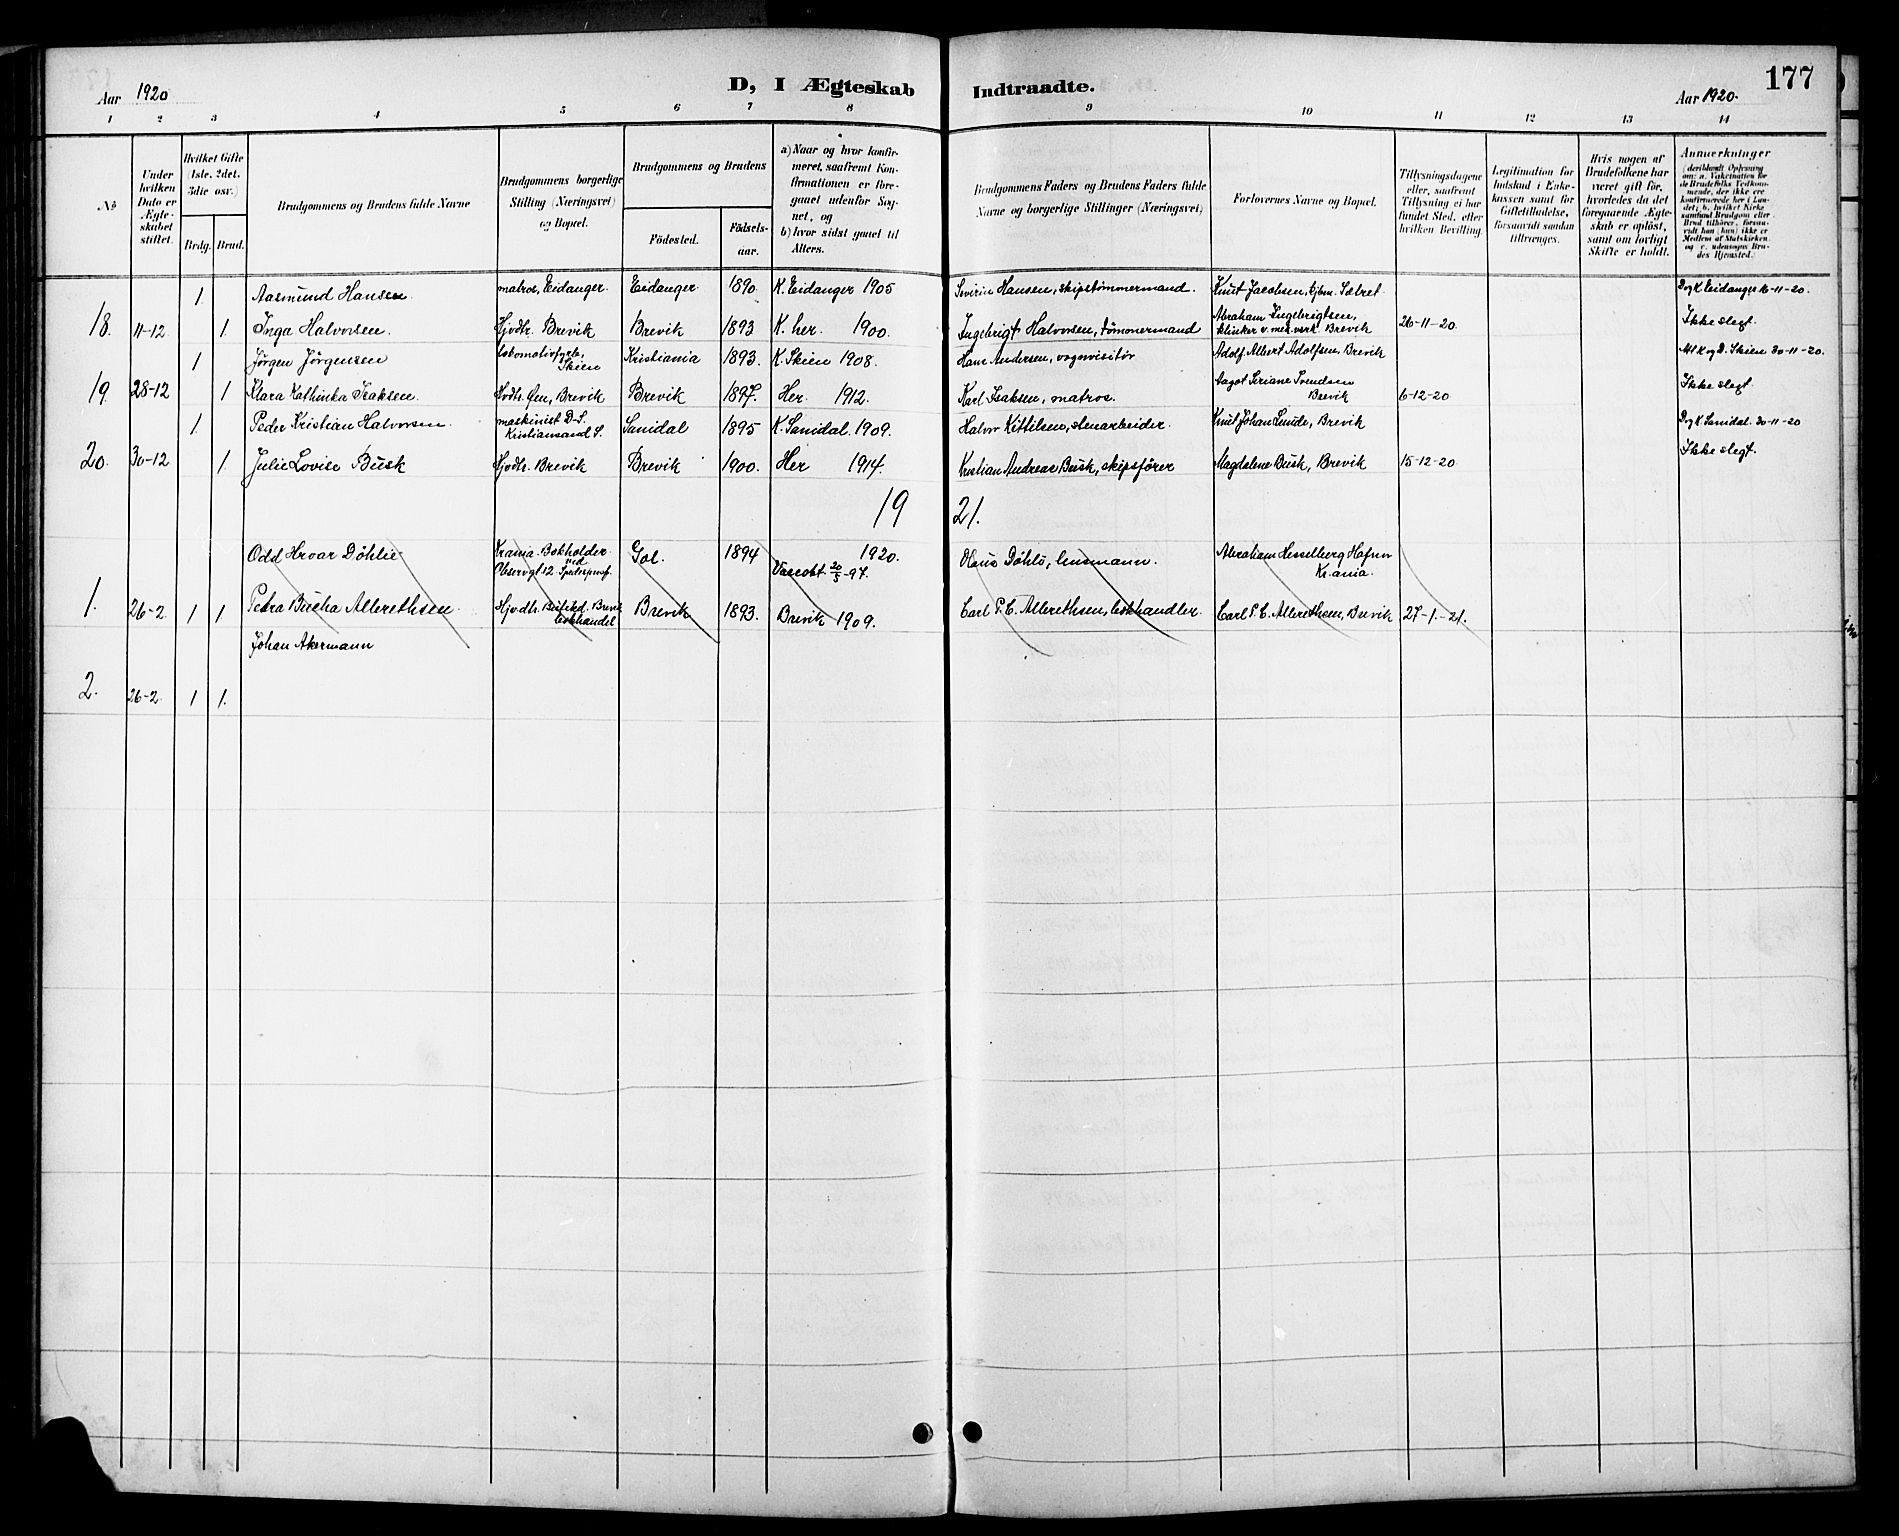 Aar 1920
D, I Ægteskab Indtraadte.
Aar 1920.
177
1 2 3 4 5 6 7 8 9 10 11 12 13 14
No
Under hvilken Dato er Ægteskabet stiftet.
Hvilket Gifte (1ste, 2det, 3die osv.)
Brdg. Brud.
Brudgommens og Brudens fulde Navne
Brudgommens borgerlige Stilling (Næringsvei) og Bopæl.
Brudgommens og Brudens
Fødested.
Fødselsaar.
a) Naar og hvor konfirmeret, saafremt Konfirmationen er foregaaet udenfor Sognet, og
b) hvor sidst gaaet til Alters.
Brudgommens Faders og Brudens Faders fulde Navne og borgerlige Stillinger (Næringsvei)
Forlovernes Navne og Bopæl.
Tillysningsdagene eller, saafremt Tillysning ei har fundet Sted, efter hvilken Bevilling.
Legitimation for Indskud i Enkekassen samt for Giftetilladelse, forsaavidt saadan tiltrænges.
Hvis nogen af Brudefolkene har været gift før, hvorledes da det foregaaende Ægteskab er opløst, samt om lovligt Skifte er holdt.
Anmerkninger
(deriblandt Oplysning om: a. Vakcination for de Brudefolks Vedkommende, der ikke ere konfirmerede her i Landet; b. hvilket Kirkesamfund Brudgom eller Brud tilhører, forsaavidt han (hun) ikke er Medlem af Statskirken og c. udensogns Brudes Hjemsted.)
1 Aasmund Hansen. matros, Eidanger. Eidanger 1890. K. Eidanger 1905 Severin Hansen, skipstømmermand. Knut Jacobsen, Sætret. D og K Eidanger 16-11-20.
18. 11-12 1. Inga Halvorsen. Hjvdtr. Brevik Brevik 1893 K. her. 1900. Ingebrigt Halvorsen, tømmermand Abraham Ingebrigtsen, klinker v. mek. verk. Brevik 26-11-20. Ikke slegt.
1 Jørgen Jørgensen Skien Kristiania 1893. K. Skien 1908. Hans Andersen, vognvisitør Adolf Albert Adolfsen, Brevik D. Skien 30-11-20.
19. 28-12 1 Klara Kathinka Isaksen. Øen, Brevik Brevik 1897. Her 1912. Karl Isaksen, matros. Aagot Seriane Svendsen Brevik 6-12-20 Ikke slegt.
1 Peder Kristian Halvorsen. maskinist D-S. Kristiansand S. Sanidal 1895 K. Sanidal. 1909. Halvor Kittilsen, stenarbeider. Knut Johan Lunde, Brevik D og K Sanidal. 30-11-20
20. 30-12 1. Julie Lovise Busk Hjvdtr. Brevik Brevik 1900. Her 1914. Kristian Andreas Busk, skipsfører Magdalene Busk, Brevik 15-12-20 Ikke slegt.
19 21.
Odd Hroar Döhlie Krania. Bokholder Gol. 1894 1920. Vaccobt. 20/5-97. Olaus Döhlö, lensmann. Abraham Hesselberg Hafner Kr.ania.
1. 26-2 1 1. Petra Bucha Allerethsen. Hjvdtr. Brevik 1893. Brevik 1909. Carl P. C. Allerethsen, bokhandler. Carl P. C. Allerethsen, Brevik 27-1.-21.
Johan Akermann
2. 26-2. 1 1.